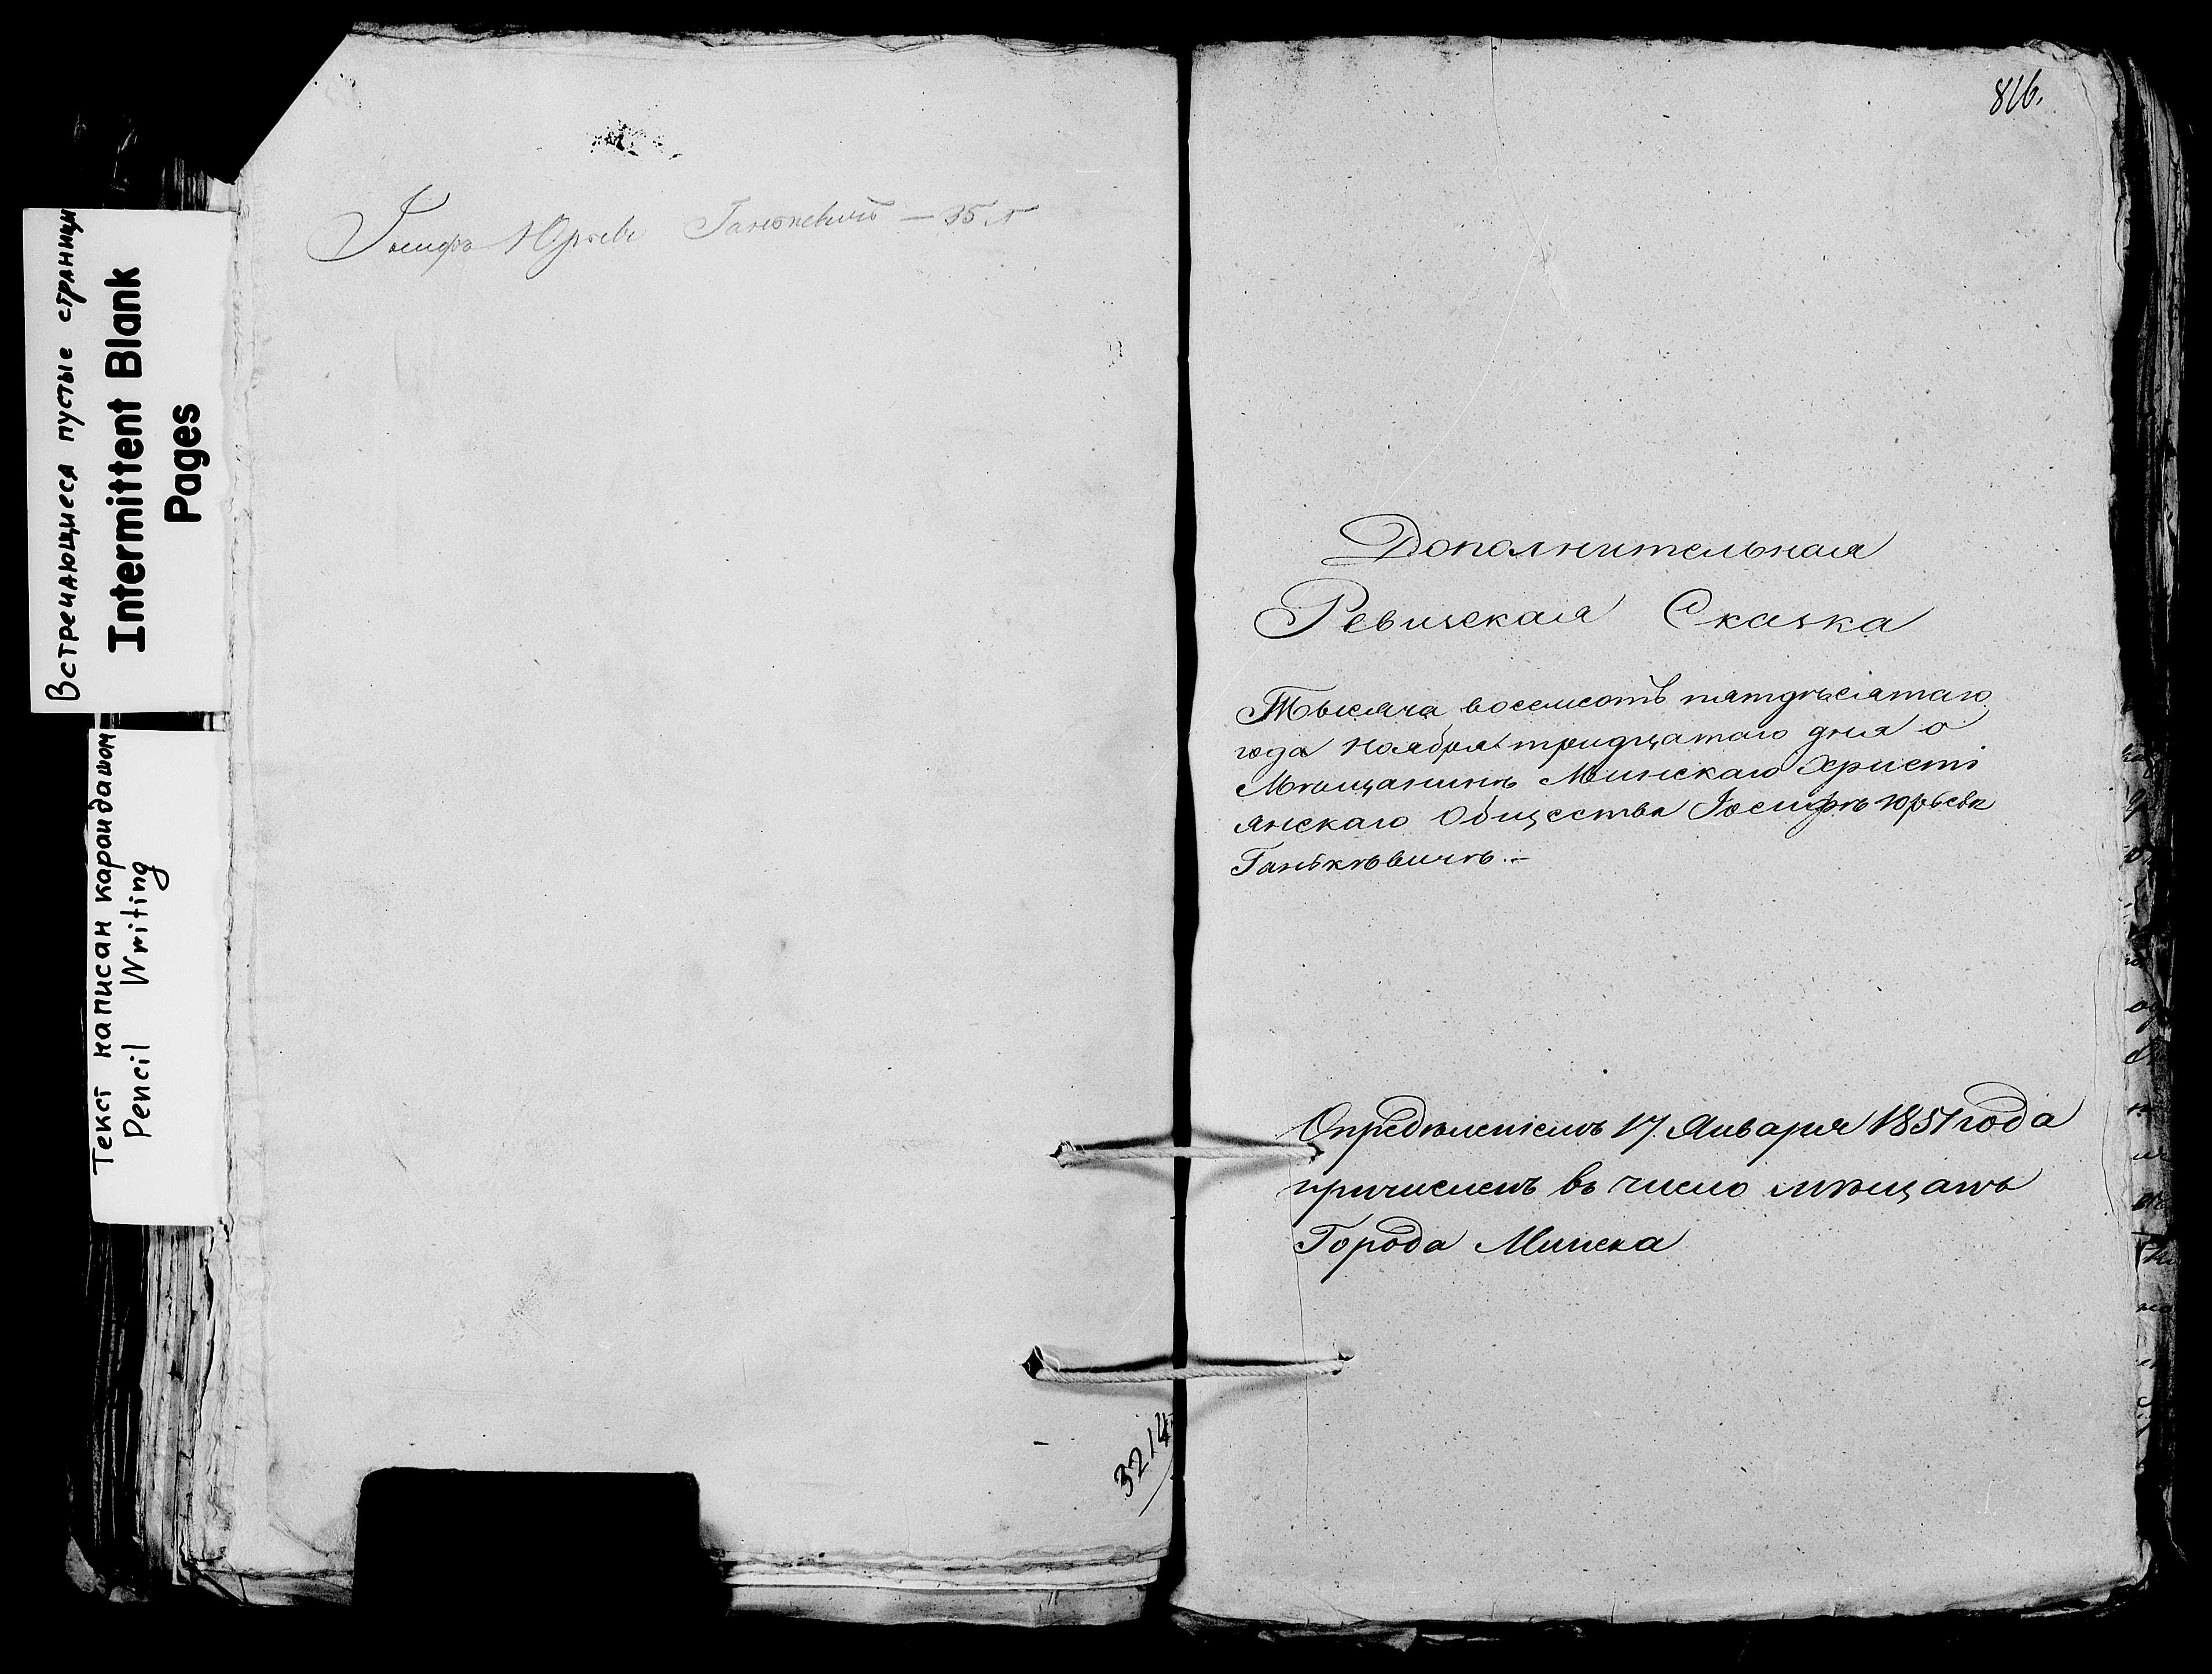 Встречающиеся пустые страницы
Intermittent Blank
Pages
Текст написан карандашом
Pencil Writing
Іосифъ Юрьевъ Ганкевичъ — 35 л
3214
816.
Дополнительная
Ревизская Сказка
Тысяча восемсотъ пятдѣсятаго
года Ноября тридцатаго дня о
Мѣщанинѣ Минскаго Христі
янскаго Общества Іосифѣ Юрьевѣ
Ганькѣвичѣ.–
Опредѣленіемъ 17 Января 1851 года
причисленъ въ число мѣщанъ
Города Минска